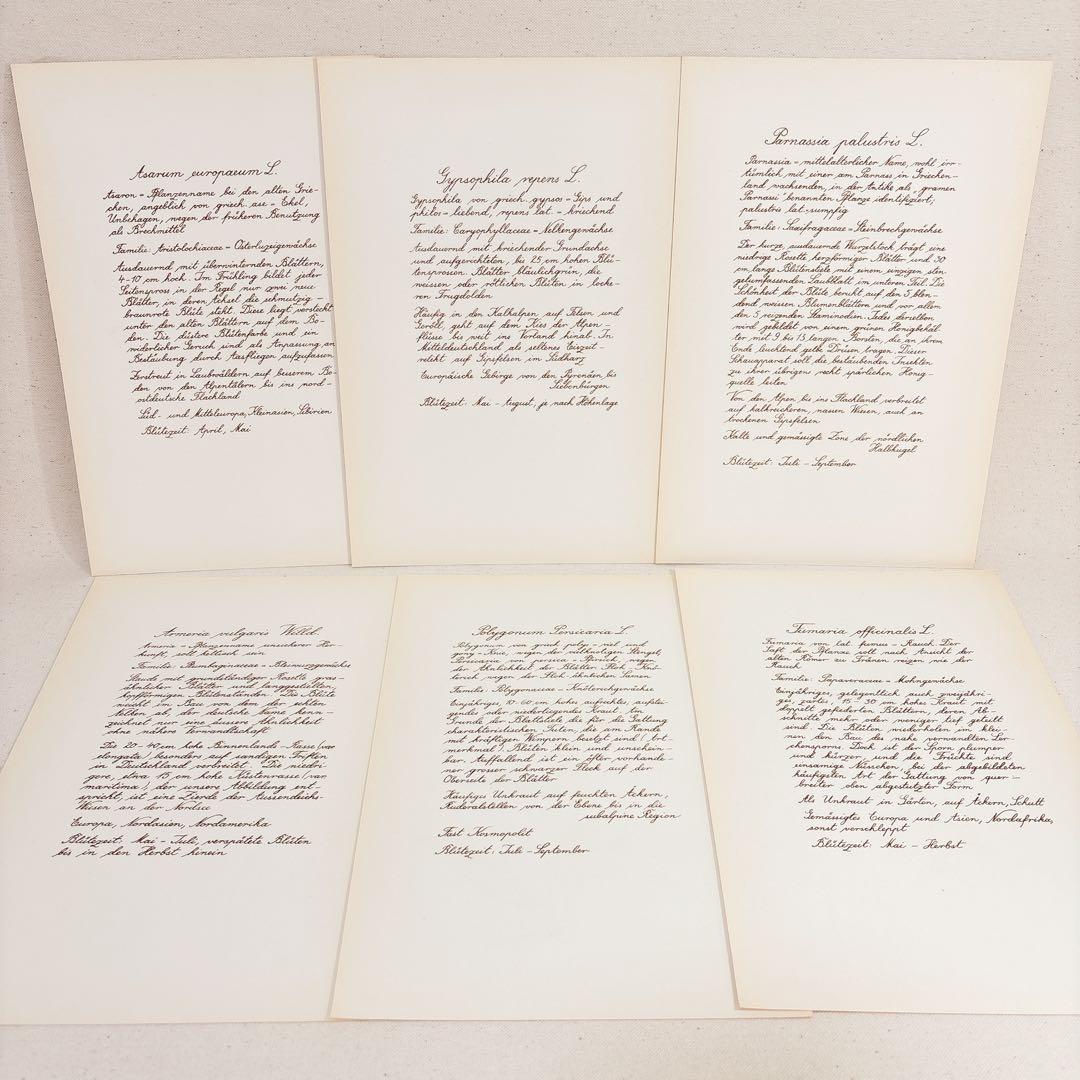 Asarum europaeum L.
Asaron = Pflanzenname bei den alten Grie-
chen, angeblich von griech. ase = Ekel,
Unbehagen, wegen der früheren Benutzung
als Brechmittel
Familie: Aristolochiaceae = Osterluzigewächse
Ausdauernd mit überwinternden Blättern,
4-10 cm hoch. Im Frühling bildet jeder
Seitenspross in der Regel nur zwei neue
Blätter, in deren Achsel die schmutzig-
braunrote Blüte steht. Diese liegt versteckt
unter den alten Blättern auf dem Bo-
den. Die düstere Blütenfarbe und ein
widerlicher Geruch sind als Anpassung an
Bestäubung durch Aasfliegen aufzufassen
Zerstreut in Laubwäldern auf besserem Bo-
den von den Alpentälern bis ins nord-
ostdeutsche Flachland
Süd- und Mitteleuropa, Kleinasien, Sibirien
Blütezeit: April, Mai
Gypsophila repens L.
Gypsophila von griech. gypsos = Gips und
philos = liebend, repens lat. = kriechend
Familie: Caryophyllaceae = Nelkengewächse
Ausdauernd mit kriechender Grundachse
und aufgerichteten, bis 25 cm hohen Blü-
tensprossen. Blätter bläulichgrün, die
weissen oder rötlichen Blüten in locke-
ren Trugdolden
Häufig in den Kalkalpen auf Felsen und
Geröll, geht auf dem Kies der Alpen-
flüsse bis weit ins Vorland hinab. In
Mitteldeutschland als seltenes Eiszeit-
relikt auf Gipsfelsen im Südharz
Europäische Gebirge von den Pyrenäen bis
Siebenbürgen
Blütezeit: Mai - August, je nach Höhenlage
Parnassia palustris L.
Parnassia = mittelalterlicher Name, wohl irr-
tümlich mit einer am Parnass in Griechen-
land wachsenden, in der Antike als "gramen
Parnassi" benannten Pflanze identifiziert;
palustris lat. = sumpfig
Familie: Saxifragaceae = Steinbrechgewächse
Der kurze ausdauernde Wurzelstock trägt eine
niedrige Rosette herzförmiger Blätter und 30
cm lange Blütenstiele mit einem einzigen sten-
gelumfassenden Laubblatt im unteren Teil. Die
Schönheit der Blüte beruht auf den 5 blen-
dend weissen Blumenblättern und vor allem
den 5 reizenden Staminodien. Jedes derselben
wird gebildet von einem grünen Honigbehäl-
ter mit 9 bis 13 langen Borsten, die an ihrem
Ende leuchtend gelbe Drüsen tragen. Dieser
Schauapparat soll die bestäubenden Insekten
zu ihrer übrigens recht spärlichen Honig-
quelle leiten
Von den Alpen bis ins Flachland verbreitet
auf kalkreicheren, nassen Wiesen, auch an
trockenen Gipsfelsen
Kalte und gemässigte Zone der nördlichen
Halbkugel
Blütezeit: Juli - September
Armeria vulgaris Willd.
Armeria = Pflanzenname unsicherer Her-
kunft, soll keltisch sein
Familie: Plumbaginaceae = Bleiwurzgewächse
Staude mit grundständiger Rosette gras-
ähnlicher Blätter und langgestielten,
kopfförmigen Blütenständen. Die Blüte
weicht im Bau von dem der echten
Nelken ab, der deutsche Name kenn-
zeichnet nur eine äussere Ähnlichkeit
ohne nähere Verwandtschaft
Die 20-40 cm hohe Binnenlands-Rasse (var.
elongata) besonders auf sandigen Triften
in Deutschland verbreitet. Die niedri-
gere, etwa 15 cm hohe Küstenrasse (var.
maritima), der unsere Abbildung ent-
spricht, ist eine Zierde der Aussendeichs-
Wiesen an der Nordsee
Europa, Nordasien, Nordamerika
Blütezeit: Mai - Juli, verspätete Blüten
bis in den Herbst hinein
Polygonum Persicaria L.
Polygonum von griech. poly = viel und
gony = Knie, wegen der vielknotigen Stengel;
Persicaria von persica = Pfirsich, wegen
der Ähnlichkeit der Blätter. Floh-Knö-
terich wegen der Floh-ähnlichen Samen
Familie: Polygonaceae = Knöterichgewächse
Einjähriges, 10-60 cm hohes aufrechtes, aufstei-
gendes oder niederliegendes Kraut. Am
Grunde der Blattstiele die für die Gattung
charakteristischen Tuten, die am Rande
mit kräftigen Wimpern besetzt sind (Art-
merkmal). Blüten klein und unschein-
bar. Auffallend ist ein öfter vorhande-
ner grosser schwarzer Fleck auf der
Oberseite der Blätter
Häufiges Unkraut auf feuchten Äckern,
Ruderalstellen von der Ebene bis in die
subalpine Region
Fast Kosmopolit
Blütezeit: Juli - September
Fumaria officinalis L.
Fumaria von lat. fumus = Rauch. Der
Saft der Pflanze soll nach Ansicht der
alten Römer zu Tränen reizen wie der
Rauch
Familie: Papaveraceae = Mohngewächse
Einjähriges, gelegentlich auch zweijähri-
ges, zartes, 15-30 cm hohes Kraut mit
doppelt gefiederten Blättern, deren Ab-
schnitte mehr oder weniger tief geteilt
sind. Die Blüten wiederholen im klei-
nen den Bau des nahe verwandten Ler-
chensporns. Doch ist der Sporn plumper
und kürzer, und die Früchte sind
einsamige Nüsschen, bei der abgebildeten
häufigsten Art der Gattung von quer-
breiter oben abgestutzter Form
Als Unkraut in Gärten, auf Äckern, Schutt
Gemässigtes Europa und Asien, Nordafrika,
sonst verschleppt
Blütezeit: Mai - Herbst